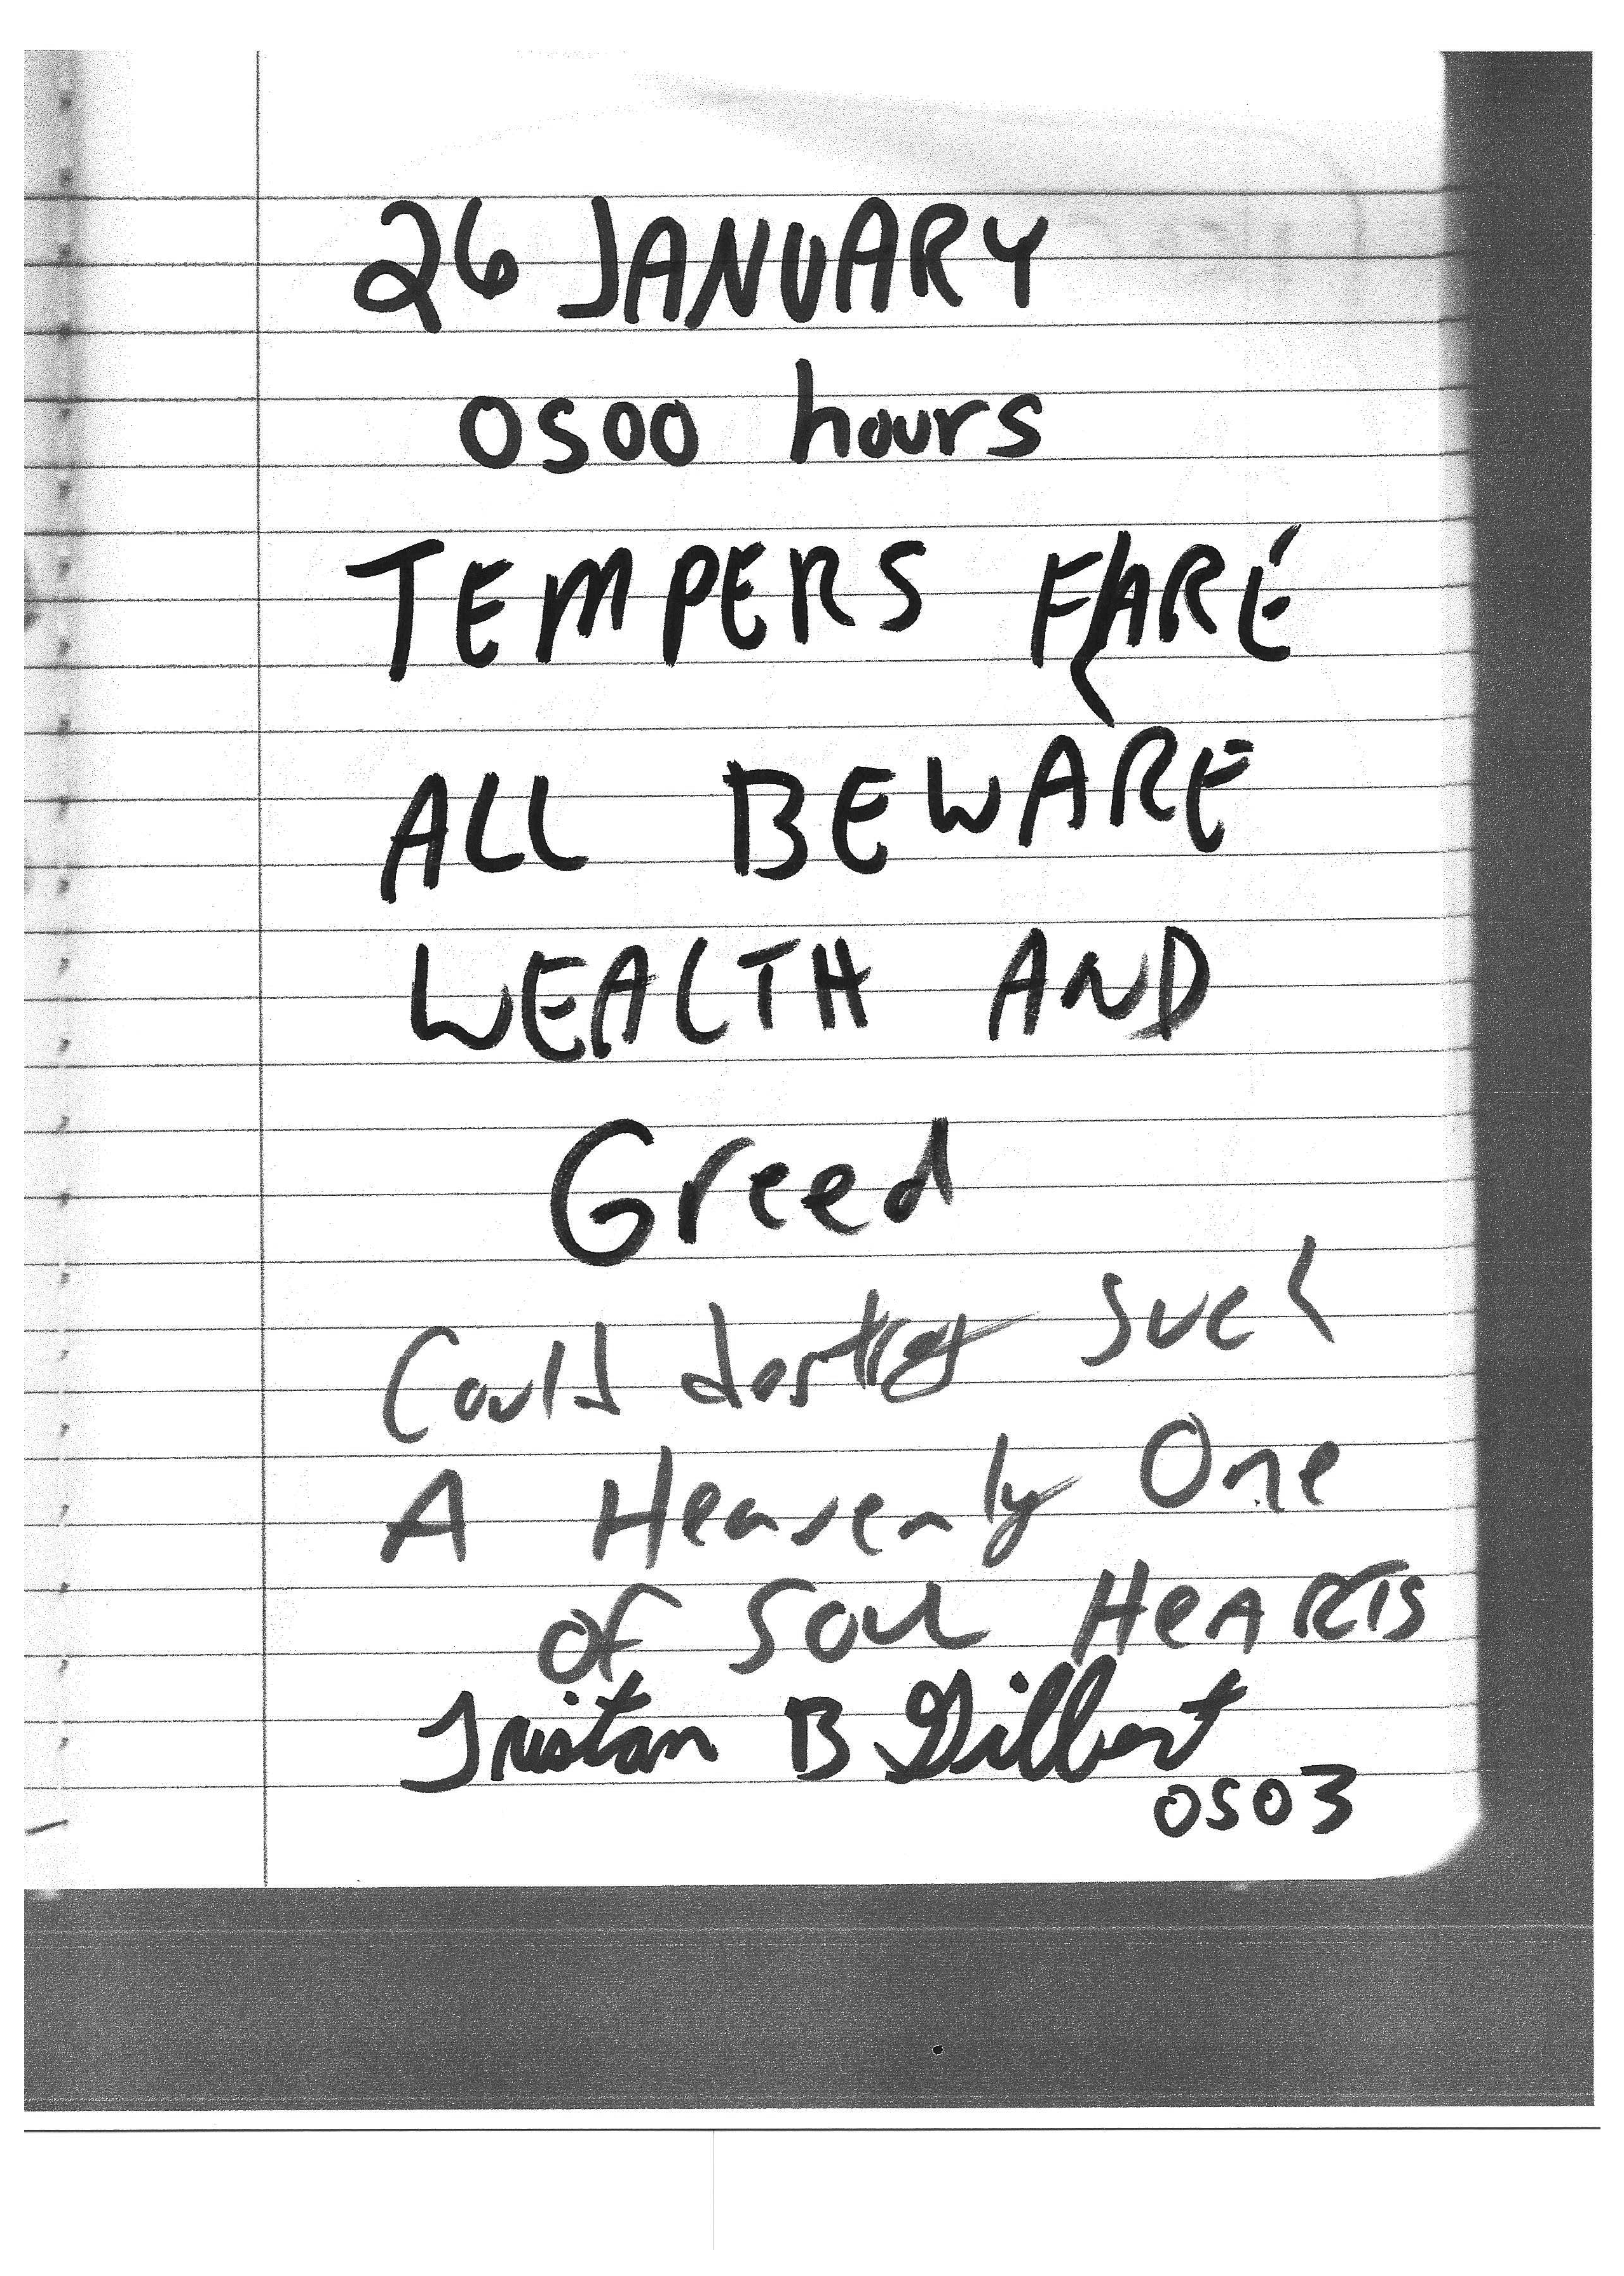 26 JANUARY
0500 hours
TEMPERS FLARE
ALL BEWARE
WEALTH AND
Greed
Could destroy such
A Heavenly One
of Soul HeARTS
Tristan B Gilbert
0503